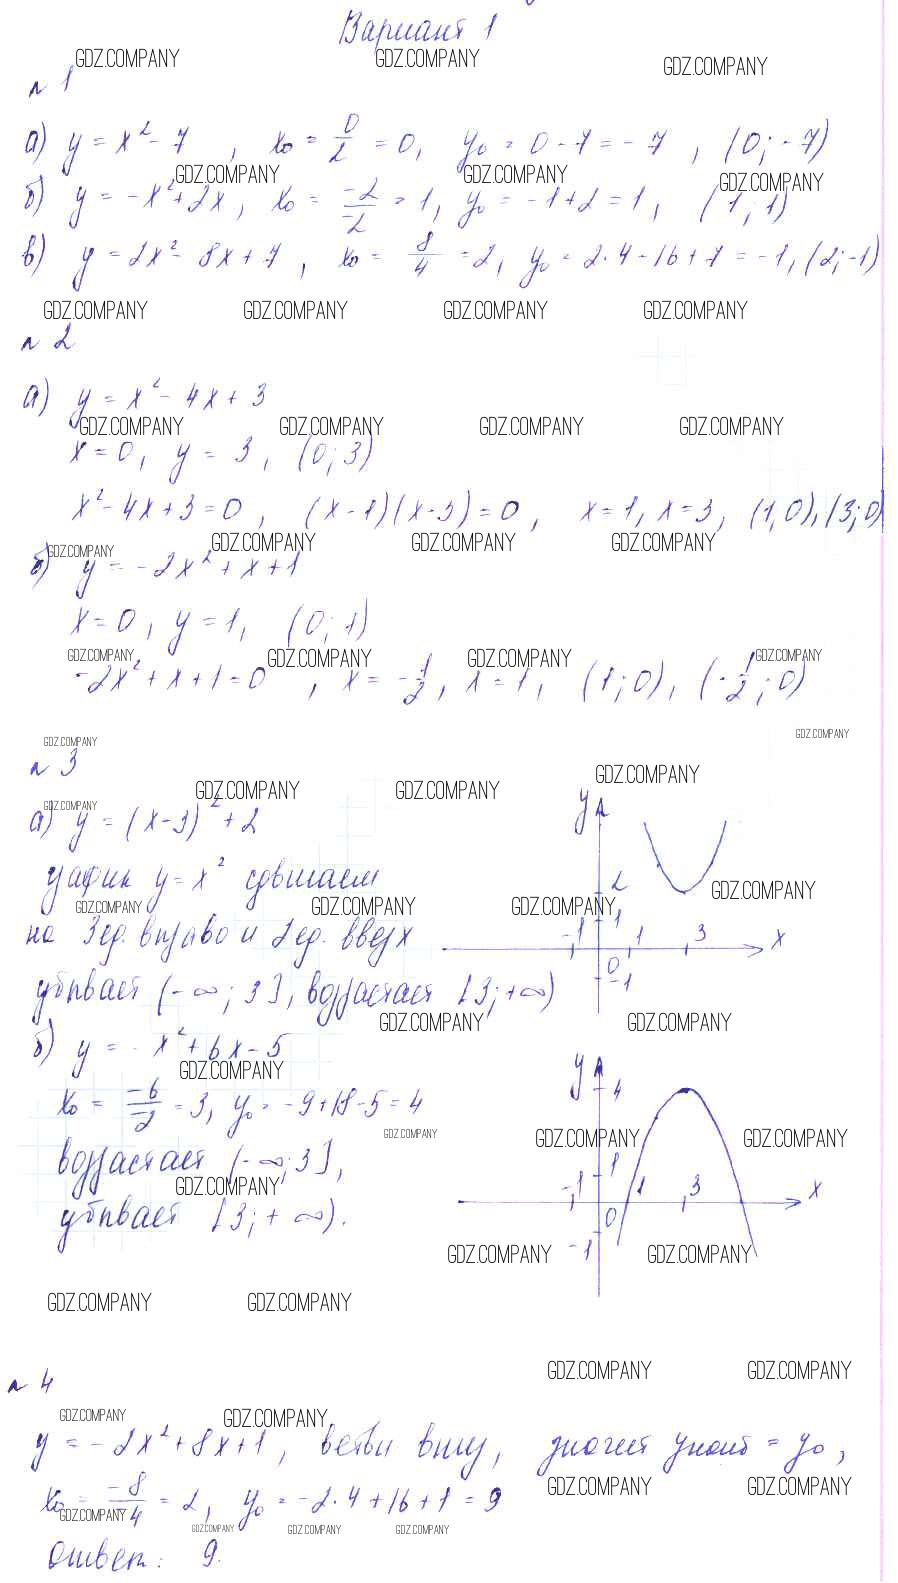 Вариант 1
GDZ.COMPANY GDZ.COMPANY GDZ.COMPANY
№ 1
а) y = x² - 7, x₀ = 0/2 = 0, y₀ = 0 - 7 = -7, (0; -7)
GDZ.COMPANY GDZ.COMPANY GDZ.COMPANY
б) y = -x² + 2x, x₀ = -2/-2 = 1, y₀ = -1 + 2 = 1, (1; 1)
в) y = 2x² - 8x + 7, x₀ = 8/4 = 2, y₀ = 2·4 - 16 + 7 = -1, (2; -1)
GDZ.COMPANY GDZ.COMPANY GDZ.COMPANY GDZ.COMPANY
№ 2
а) y = x² - 4x + 3
GDZ.COMPANY GDZ.COMPANY GDZ.COMPANY GDZ.COMPANY
x = 0, y = 3, (0; 3)
x² - 4x + 3 = 0, (x - 1)(x - 3) = 0, x = 1, x = 3, (1; 0), (3; 0)
GDZ.COMPANY GDZ.COMPANY GDZ.COMPANY GDZ.COMPANY
б) y = -2x² + x + 1
x = 0, y = 1, (0; 1)
GDZ.COMPANY GDZ.COMPANY GDZ.COMPANY GDZ.COMPANY
-2x² + x + 1 = 0, x = -1/2, x = 1, (1; 0), (-1/2; 0)
GDZ.COMPANY GDZ.COMPANY
№ 3
GDZ.COMPANY GDZ.COMPANY GDZ.COMPANY
GDZ.COMPANY
а) y = (x - 3)² + 2
y
график y = x² сдвигаем
2
GDZ.COMPANY
GDZ.COMPANY GDZ.COMPANY GDZ.COMPANY
1
на 3 ед. вправо и 2 ед. вверх
-1 0 1 3 x
-1
убывает (-∞; 3], возрастает [3; +∞)
GDZ.COMPANY GDZ.COMPANY
б) y = -x² + 6x - 5
GDZ.COMPANY
y
4
x₀ = -6/-2 = 3, y₀ = -9 + 18 - 5 = 4
GDZ.COMPANY GDZ.COMPANY GDZ.COMPANY
возрастает (-∞; 3],
1
GDZ.COMPANY
-1 0 1 3 x
убывает [3; +∞).
-1
GDZ.COMPANY GDZ.COMPANY
GDZ.COMPANY GDZ.COMPANY
GDZ.COMPANY GDZ.COMPANY
№ 4
GDZ.COMPANY GDZ.COMPANY
y = -2x² + 8x + 1, ветви вниз, значит yнаиб = y₀,
GDZ.COMPANY GDZ.COMPANY
x₀ = -8/-4 = 2, y₀ = -2·4 + 16 + 1 = 9
GDZ.COMPANY GDZ.COMPANY GDZ.COMPANY GDZ.COMPANY
Ответ: 9.